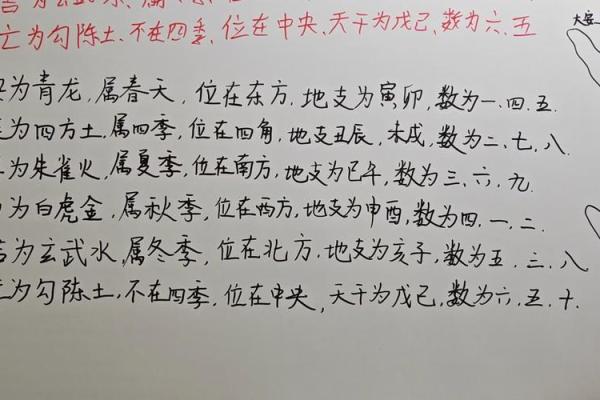 言为玄武水,属冬
亡为勾陈土,不在四季,位在中央,天干为戊己,数为六、五
大安
为青龙,属春天,位在东方,地支为寅卯,数为一、四、五.
为四方土,属四季,位在四角,地支丑辰,未戌,数为二、七、八.
为朱雀火,属夏季,位在南方,地支为巳午,数为三、六、九.
为白虎金,属秋季,位在西方,地支为申酉,数为四、一、二.
吉为玄武水,属冬季,位在北方,地支为亥子,数为五、三、八
为勾陈土,不在四季,位在中央,天干为戊己,数为六、五、十.